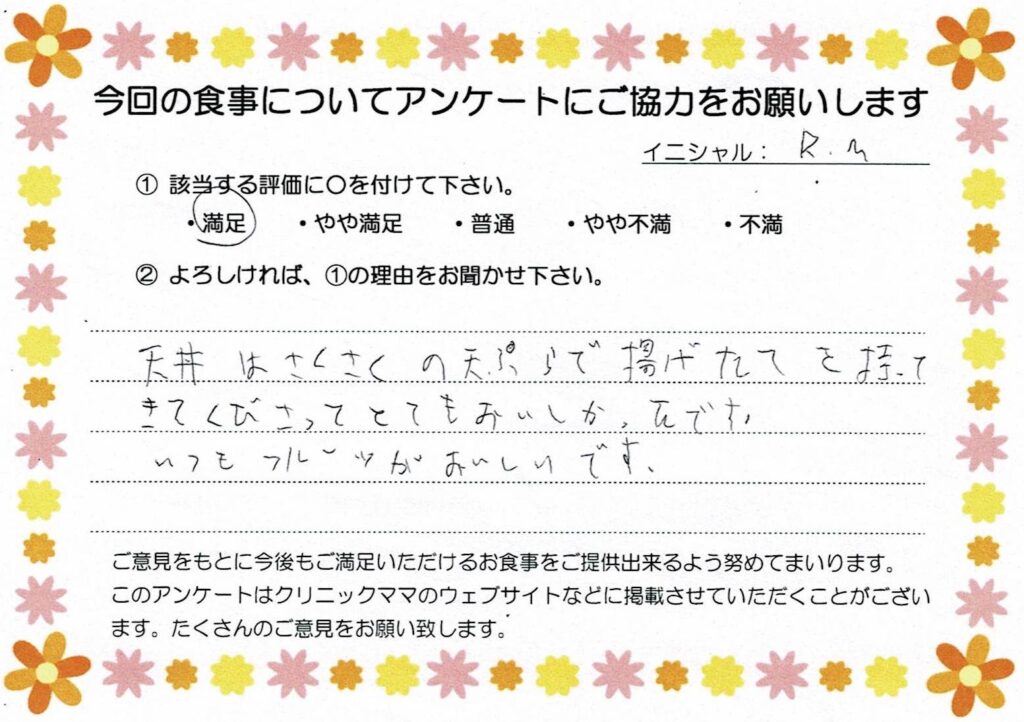 今回の食事についてアンケートにご協力をお願いします
イニシャル： R.M
① 該当する評価に〇を付けて下さい。
・満足 ・やや満足 ・普通 ・やや不満 ・不満
② よろしければ、①の理由をお聞かせ下さい。
天丼はさくさくの天ぷらで揚げたてを持って
きてくださってとてもおいしかったです。
いつもフルーツがおいしいです。
ご意見をもとに今後もご満足いただけるお食事をご提供出来るよう努めてまいります。
このアンケートはクリニックママのウェブサイトなどに掲載させていただくことがござい
ます。たくさんのご意見をお願い致します。